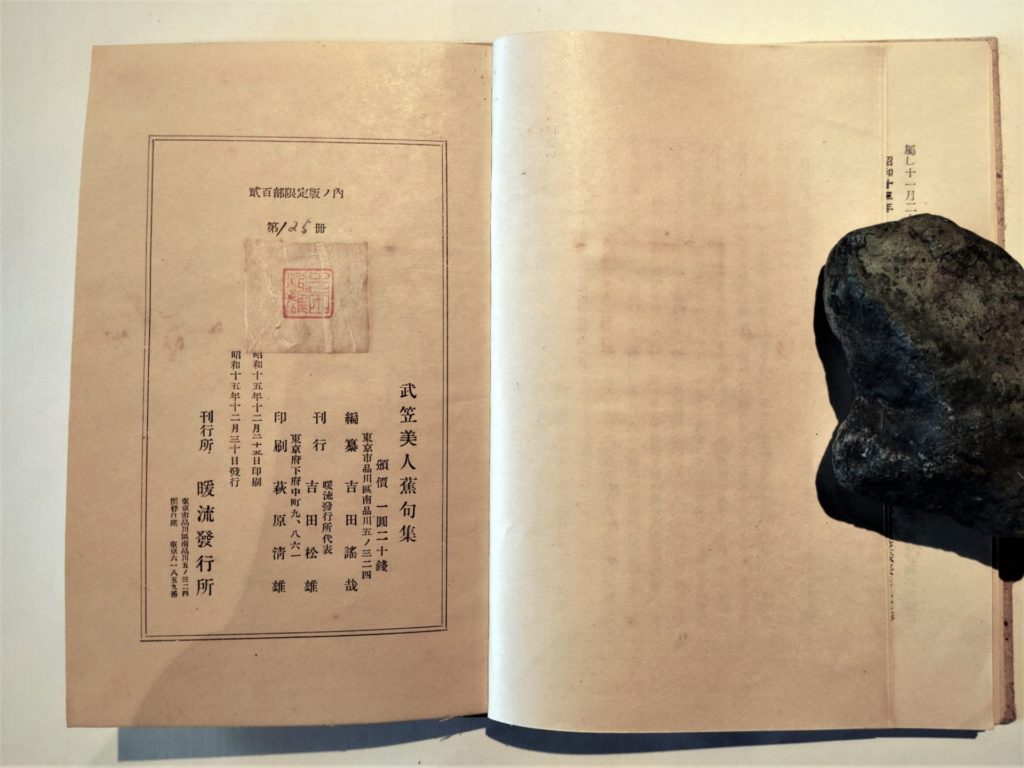 屬し十一月二
昭和十五年
貳百部限定版ノ內
第125冊
武笠美人蕉句集
頒價 一圓二十錢
東京市品川區南品川五ノ三二四
編纂 吉田謠哉
暖流發行所代表
刊行 吉田松雄
東京府下府中町九、八六一
印刷 萩原淸雄
昭和十五年十二月二十五日印刷
昭和十五年十二月三十日發行
刊行所 暖流發行所
東京市品川區南品川五ノ三二四
振替口座 東京六一八五九番